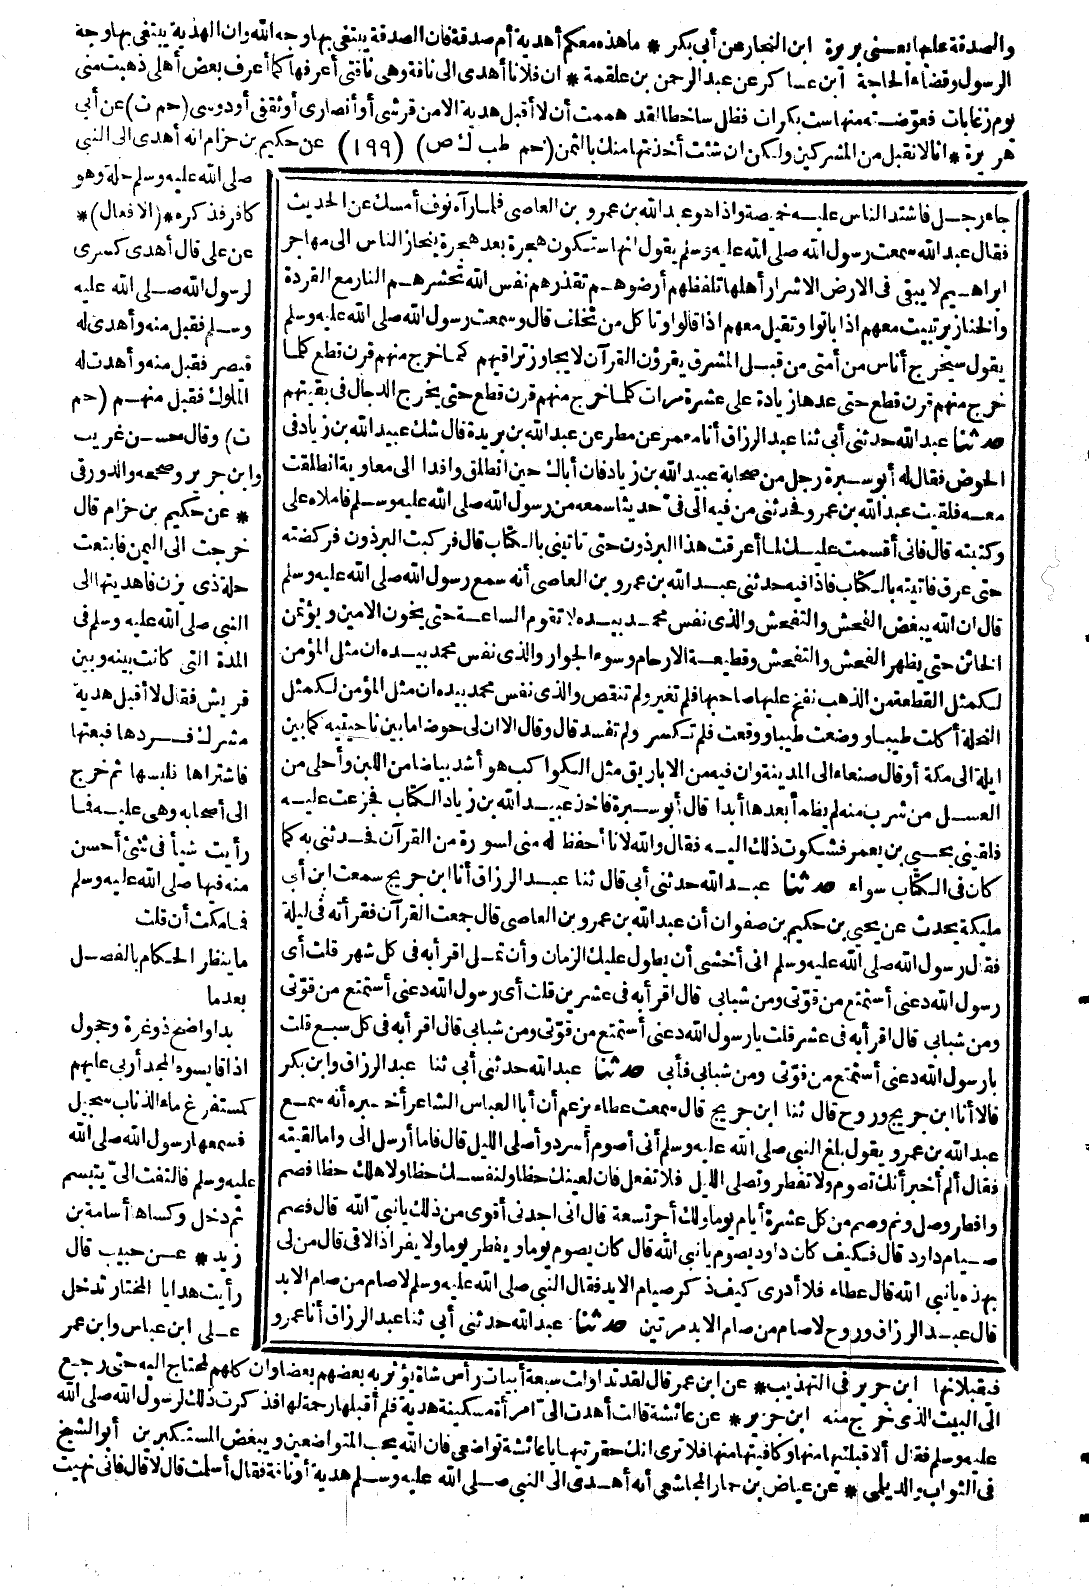 والصدقة عليها يعني بريرة ابن النجار عن أبي بكر * ما هذه معكم أهدية أم صدقة فان الصدقة يبتغى بها وجه الله وان الهدية يبتغى بها وجه
الرسول وقضاء الحاجة ابن عساكر عن عبد الرحمن بن علقمة * ان فلانا أهدى الى ناقة وهى ناقتى أعرفها كما أعرف بعض أهلى ذهبت منى
يوم زغابات فعوضته منها ست بكرات فظل ساخطا لقد هممت أن لا أقبل هدية الا من قرشى أو أنصارى أو ثقفى أو دوسى (حم ت) عن أبى
هريرة * انا لا نقبل من المشركين ولكن ان شئت أخذتها منك بالثمن (حم طب ك ص) (١٩٩) عن حكيم بن حزام انه أهدى الى النبى
صلى الله عليه وسلم حلة وهو
كافر فذكره * (الافعال) *
عن على قال أهدى كسرى
لرسول الله صلى الله عليه
وسلم فقبل منه وأهدى له
قيصر فقبل منه وأهدت له
الملوك فقبل منهم (حم
ت) وقال حسن غريب
وابن جرير وصححه والدورقى
* عن حكيم بن حزام قال
خرجت الى اليمن فابتعت
حلة ذى يزن فاهديتها الى
النبى صلى الله عليه وسلم فى
المدة التى كانت بينه وبين
قريش فقال لا أقبل هدية
مشرك فردها فبعتها
فاشتراها فلبسها ثم خرج
الى أصحابه وهى عليه فما
رأيت شيأ فى شئ أحسن
منه فيها صلى الله عليه وسلم
فما مكثت أن قلت
ما ينظر الحكام بالفصل
بعدما
بدا واضح ذو غرة وحجول
اذا قايسوه المجد أربى عليهم
كستفرغ ماء الذناب سجيل
فسمعها رسول الله صلى الله
عليه وسلم فالتفت الىّ يتبسم
ثم دخل وكساها أسامة بن
زيد * عن حبيب قال
رأيت هدايا المختار تدخل
على ابن عباس وابن عمر
فيقبلانها ابن جرير فى التهذيب * عن ابن عمر قال لقد تداولت سبعة أبيات رأس شاة يؤثر به بعضهم بعضا وان كلهم لمحتاج اليه حتى رجع
الى البيت الذى خرج منه ابن جرير * عن عائشة قالت أهدت الىّ امرأة مسكينة هدية فلم أقبلها رحمة لها فذكرت ذلك لرسول الله صلى الله
عليه وسلم فقال ألا قبلتيها منها وكافيتيها منها فلا ترى انك حقرتيها يا عائشة تواضعى فان الله يحب المتواضعين ويبغض المستكبرين أبو الشيخ
فى الثواب والديلمى * عن عياض بن حمار المجاشعى أنه أهدى الى النبى صلى الله عليه وسلم هدية أو ناقة فقال أسلمت قال لا قال فانى نهيت
جاء رجل فاشتد الناس عليه خميصة واذا هو عبد الله بن عمرو بن العاصى فلما رآه نوف أمسك عن الحديث
فقال عبد الله سمعت رسول الله صلى الله عليه وسلم يقول انها ستكون هجرة بعد هجرة ينحاز الناس الى مهاجر
ابراهيم لا يبقى فى الارض الا شرار أهلها تلفظهم أرضوهم تقذرهم نفس الله تحشرهم النار مع القردة
والخنازير تبيت معهم اذا باتوا وتقيل معهم اذا قالوا وتأكل من تخلف قال وسمعت رسول الله صلى الله عليه وسلم
يقول سيخرج أناس من أمتى من قبل المشرق يقرؤن القرآن لا يجاوز تراقيهم كما خرج منهم قرن قطع كلما
خرج منهم قرن قطع حتى عدها زيادة على عشرة مرات كلما خرج منهم قرن قطع حتى يخرج الدجال فى بقيتهم
حدثنا عبد الله حدثنى أبى ثنا عبد الرزاق أنا معمر عن مطر عن عبد الله بن بريدة قال شك عبيد الله بن زياد فى
الحوض فقال له أبو سبرة رجل من صحابة عبيد الله بن زياد فان أباك حين انطلق وافدا الى معاوية انطلقت
معه فلقيت عبد الله بن عمرو فحدثنى من فيه الى فى حديثا سمعه من رسول الله صلى الله عليه وسلم فاملاه على
وكتبته قال فانى أقسمت عليك لما أعرقت هذا البرذون حتى تأتينى بالكتاب قال فركبت البرذون فركضته
حتى عرق فاتيته بالكتاب فاذا فيه حدثنى عبد الله بن عمرو بن العاصى أنه سمع رسول الله صلى الله عليه وسلم
قال ان الله يبغض الفحش والتفحش والذى نفس محمد بيده لا تقوم الساعة حتى يخون الامين ويؤتمن
الخائن حتى يظهر الفحش والتفحش وقطيعة الارحام وسوء الجوار والذى نفس محمد بيده ان مثل المؤمن
لكمثل القطعة من الذهب نفخ عليها صاحبها فلم تغير ولم تنقص والذى نفس محمد بيده ان مثل المؤمن لكمثل
النحلة أكلت طيبا ووضعت طيبا ووقعت فلم تكسر ولم تفسد قال وقال الا ان لى حوضا ما بين ناحيتيه كما بين
ايلة الى مكة أو قال صنعاء الى المدينة وان فيه من الاباريق مثل الكواكب هو أشد بياضا من اللبن وأحلى من
العسل من شرب منه لم يظمأ بعدها أبدا قال أبو سبرة فاخذ عبيد الله بن زياد الكتاب فجزعت عليه
فلقينى يحيى بن يعمر فشكوت ذلك اليه فقال والله لانا أحفظ له منى لسورة من القرآن فحدثنى به كما
كان فى الكتاب سواء حدثنا عبد الله حدثنى أبى قال ثنا عبد الرزاق أنا ابن جريج سمعت ابن أبى
مليكة يحدث عن يحيى بن حكيم بن صفوان أن عبد الله بن عمرو بن العاصى قال جمعت القرآن فقرأته فى ليلة
فقال رسول الله صلى الله عليه وسلم انى أخشى أن يطول عليك الزمان وأن تمل اقرأ به فى كل شهر قلت أى
رسول الله دعنى أستمتع من قوتى ومن شبابى قال اقرأ به فى عشرين قلت أى رسول الله دعنى أستمتع من قوتى
ومن شبابى قال اقرأ به فى عشر قلت يا رسول الله دعنى أستمتع من قوتى ومن شبابى قال اقرأ به فى كل سبع قلت
يا رسول الله دعنى أستمتع من قوتى ومن شبابى فأبى حدثنا عبد الله حدثنى أبى ثنا عبد الرزاق وابن بكر
قالا أنا ابن جريج وروح قال ثنا ابن جريج قال سمعت عطاء يزعم أن أبا العباس الشاعر أخبره أنه سمع
عبد الله بن عمرو يقول بلغ النبى صلى الله عليه وسلم أنى أصوم أسرد وأصلى الليل قال فاما أرسل الى واما لقيته
فقال ألم أخبر أنك تصوم ولا تفطر وتصلى الليل فلا تفعل فان لعينك حظا ولنفسك حظا ولاهلك حظا فصم
وافطر وصل ونم وصم من كل عشرة أيام يوما ولك أجر تسعة قال انى اجدنى أقوى من ذلك يا نبى الله قال فصم
صيام داود قال فكيف كان داود يصوم يا نبى الله قال كان يصوم يوما ويفطر يوما ولا يفر اذا لاقى قال من لى
بهذه يا نبى الله قال عطاء فلا أدرى كيف ذكر صيام الابد فقال النبى صلى الله عليه وسلم لا صام من صام الابد
قال عبد الرزاق وروح لا صام من صام الابد مرتين حدثنا عبد الله حدثنى أبى ثنا عبد الرزاق أنا عمرو